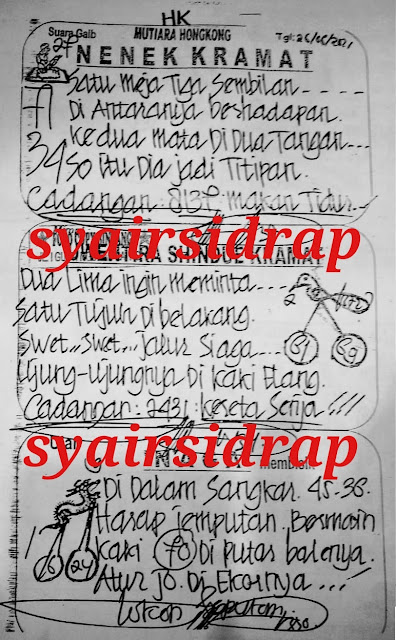 HK
Suara Gaib MUTIARA HONGKONG Tgl: 26/
27 NENEK KRAMAT
Satu Meja Tiga Sembilan - - - - -
Di Antaranya berhadapan.
Kedua mata Di Dua Tangan - - -
34 So itu Dia jadi Titipan.
Cadangan: 8137: makan Tidur
syairsidrap
KRAMAT
Dua Lima ingin meminta - - - -
Satu Tujuh Di belakang.
Swet.. Swet... Jalur Siaga - - -
Ujung-Ujungnya Di Kaki Elang.
Cadangan: 2431: Keseta Senja !!!
syairsidrap
Di Dalam Sangkar. 45-38.
Harap jemputan. Bermain
kaki 70 Di putar balenya.
Atur 10. Di Ekornya . . . !